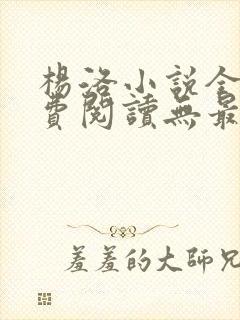 楊洛小說全
費閱讀無最
羞羞的大師兄